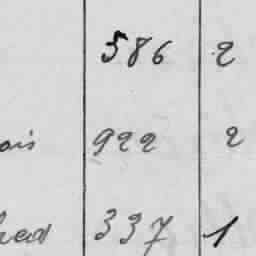 586 2
ois 922 2
337 1